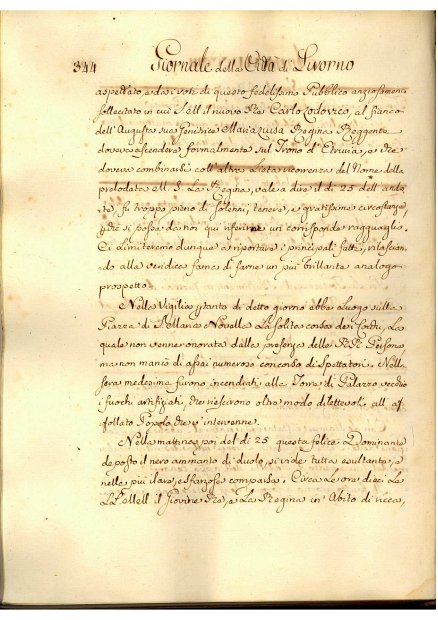 344 Giornale della Città di Livorno
aspettato, e dai voti di questo fedelissimo Pubblico anziosamente
sollecitato in cui S. M. il nuovo Re Carlo Lodovico, al fianco
dell'Augusta sua Genitrice Maria Luisa Regina Reggente
doveva ascendere formalmente sul Trono d'Etruria, e che
doveva combinarsi coll'altra lieta ricorrenza del Nome della
prelodata M. S. La Regina, vale a dire il dì 25 dell'andan
te, fu troppo pieno di solenni, tenere, e gratissime circostanze,
perché si possa da noi qui inferirne un corrispondente ragguaglio.
Ci limiteremo dunque a riportare i principali fatti, rilascian
do alla veridica fama di farne un più brillante analogo
prospetto.
Nella Vigilia pertanto di detto giorno ebbe luogo sulla
Piazza di S. Maria Novella la solita corsa dei Cocchi, la
quale non venne onorata dalla presenza delle RR. Persone
ma non mancò di assai numeroso concorso di Spettatori. Nella
sera medesima furono incendiati alla Torre di Palazzo vecchio
i fuochi artifiziati, che riescirono oltre modo dilettevoli all'af
follato Popolo che v'intervenne.
Nella mattina poi del dì 25 questa felice Dominante
deposto il nero ammanto di duolo, si vide tutta esultante, e
nella più ilare, e sfarzosa comparsa. Circa le ore dieci le
LL. MM. il Giovine Re, e La Regina in Abito di ricca,